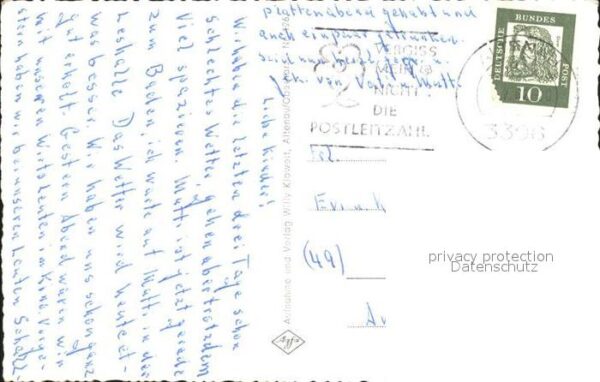 Liebe Kinder!
Wir haben die letzten drei Tage schon
schlechtes Wetter, gehen aber trotzdem
viel spazieren. Mutti ist jetzt gerade
zum Baden, ich warte auf Mutti, in der
Lesehalle. Das Wetter wird heute et-
was besser. Wir haben uns schon ganz
gut erholt. Gestern Abend waren wir
mit unseren Wirtsleuten im Kino. Vorge-
stern haben wir bei unseren Leuten Schall-
plattenabend gehabt und
auch ein paar getrunken.
Seid nun herzl. gegr. u.
gek. von Vati u. Mutti.
VERGISS
MEIN
NICHT
DIE
POSTLEITZAHL
3396
DEUTSCHE
BUNDES
POST
10
Aufnahme und Verlag Willy Klawott, Altenau/Oberharz
Agfa
Evi u.
(49)
privacy protection
Datenschutz